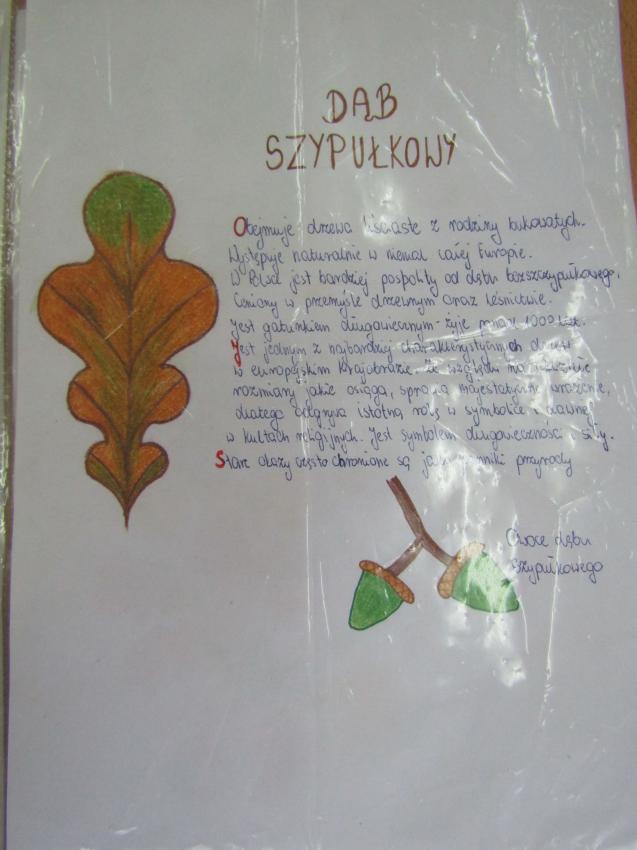 DĄB
SZYPUŁKOWY
Obejmuje drzewa liściaste z rodziny bukowatych.
Występuje naturalnie w niemal całej Europie.
W Polsce jest bardziej pospolity od dębu bezszypułkowego.
Ceniony w przemyśle drzewnym oraz leśnictwie.
Jest gatunkiem długowiecznym - żyje ponad 1000 lat.
Jest jednym z najbardziej charakterystycznych drzew
w europejskim krajobrazie, ze względu na
rozmiary jakie osiąga, sprawia majestatyczne wrażenie,
dlatego odgrywa istotną rolę w symbolice i dawnej
w kultach religijnych. Jest symbolem długowieczności i siły.
Stare okazy często chronione są jako pomniki przyrody
Owoce dębu
Szypułkowego